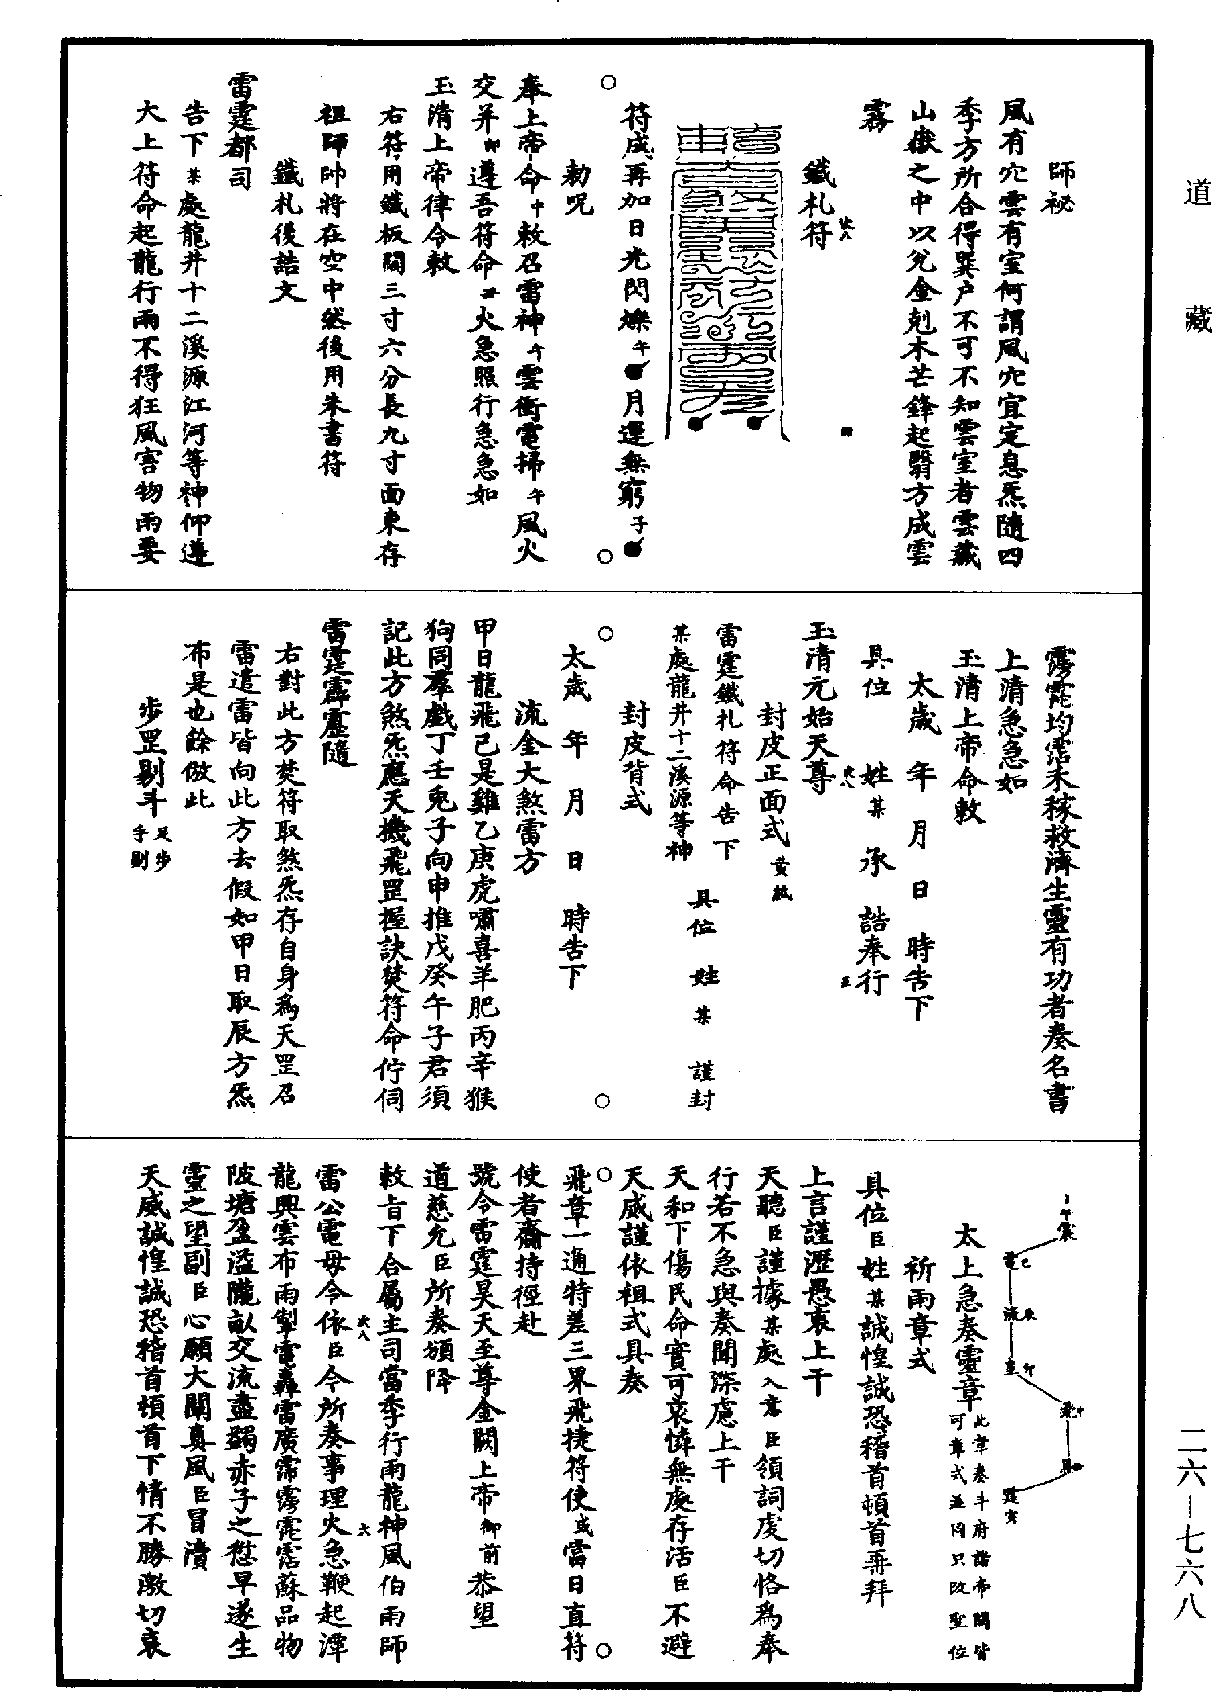 道藏
師祕
風有穴雲有室何謂風穴宜定息炁隨四
季方所合得巽户不可不知雲室者雲藏
山嶽之中以兊金剋木芒鋒起翳方成雲
霧
鐵札符
符成再加日光閃爍午月運無窮子
勑呪
奉上帝命中敕召雷神午雲衝電掃午風火
交并卯遵吾符命火急照行急急如
玉清上帝律令敕
右符用鐵板闊三寸六分長九寸面東存
祖師帥將在空中然後用朱書符
鐵札後誥文
雷霆都司
告下某處龍井十二溪源江河等神仰遵
大上符命起龍行雨不得狂風害物雨要
霶霈均霑禾稼救濟生靈有功者奏名書
上清急急如
玉清上帝命敕
太歲年月日時告下
具位姓某承誥奉行
玉清元始天尊
封皮正面式黄紙
雷霆鐵札符命告下
某處龍井十二溪源等神
具位姓某謹封
封皮背式
太歲年月日時告下
流金大煞雷方
甲日龍飛己是雞乙庚虎嘯喜羊肥丙辛猴
狗同羣戲丁壬兎子向申推戊癸午子君須
記此方煞炁應天機飛罡握訣焚符命佇伺
雷霆霹靂隨
右對此方焚符取煞炁存自身爲天罡召
雷遣雷皆向此方去假如甲日取辰方炁
布是也餘倣此
步罡剔斗足步手剔
太上急奏靈章此章奏斗府諸帝闕皆可章式並同只改聖位
祈雨章式
具位臣姓某誠惶誠恐稽首頓首再拜
上言謹瀝愚衷上干
天聽臣謹據某處入意臣領詞虔切恪爲奉
行若不急與奏聞深慮上干
天和下傷民命實可哀憐無處存活臣不避
天威謹依祖式具奏
飛章一通特差三界飛捷符使或當日直符
使者齎持徑赴
號令雷霆昊天至尊金闕上帝御前恭望
道慈允臣所奏頒降
敕旨下合屬主司當季行雨龍神風伯雨師
雷公電母令依臣今所奏事理火急鞭起潭
龍興雲布雨掣電轟雷廣霈霶霈霑蘇品物
陂塘盈溢隴畝交流盡蠲赤子之愆早遂生
靈之望副臣心願大闡真風臣冒瀆
天威誠惶誠恐稽首頓首下情不勝激切哀
二六—七六八